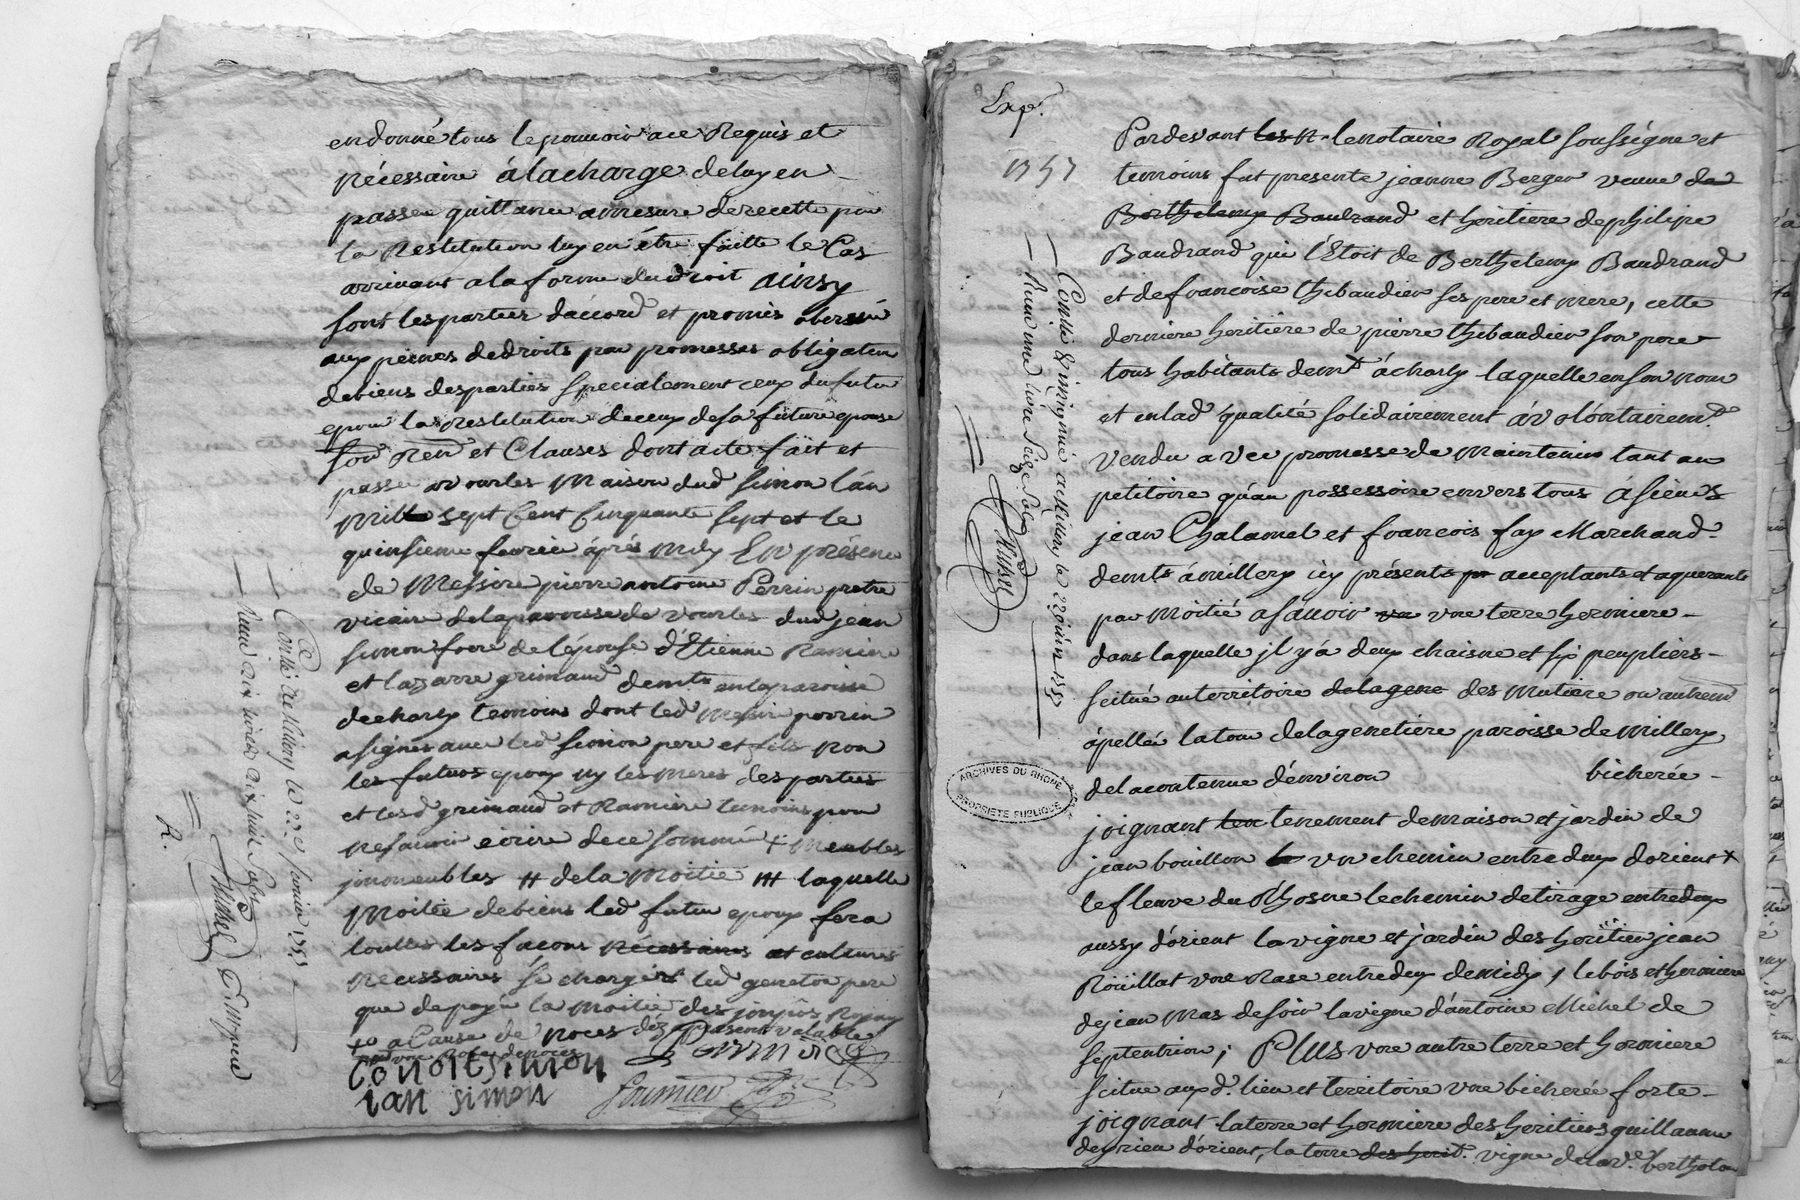 en donné tous le pouvoir a ce Requis et
nécessaire á la charge de luy en
passer quittance a mesure de recette pour
la Restitution luy en étre faitte le Cas
arrivant a la forme du droit ainsy
sont les parties d'accord et promis observer
aux peines de droits par promesses obligation
de biens des parties specialement ceux du futur
epour la Restitution de ceux de sa future epouse
sous Ren et Clauses dont acte fait et
passé a vourles Maison dud simon l'án
Mill sept Cent Cinquante sept et le
quinsieme fevrier áprés Midy En présence
de Messire pierre antoine Perrin pretre
vicaire de la parroisse de vourles dud jean
simon frere de l'épouse d'Etienne Ramiere
et lazarre grimaud demts en la paroisse
de charly temoins dont led Messire perrin
a signé avec led simon pere et fils non
les futurs epoux ny les meres des parties
et lesd grimaud et Ramiere temoins pour
ne savoir ecrire de ce sommé + Meubles
jmmeubles # de la Moitié ## laquelle
Moitié de biens led futur epoux fera
touttes les facons nécessaires et cultures
Necessaires se chargent led pere
que de payer la Moitié des Royaux
a Cause de Noces présent valable
benoit simon Perrin vic
ian simon fournier
Conllé a Millery le 22e fevrier 1757
Reçu dix livres dix huit sols
Thuser
R.
Exp.
1757
Pardevant les N le notaire Royal soussigne et
temoins fut presente jeanne Berger veuve de
Berthelemy Baudrand et heritiere de philipe
Baudrand qui l'Etoit de Berthelemy Baudrand
et de francoise thibaudier ses pere et mere, cette
derniere heritiére de pierre thibaudier son pere
tous habitants demt á charly laquelle en son nom
et enlad qualité solidairement á volóntairemt
vendu avec promesse de Maintenir tant au
petitoire qu'au possessoire envers tous á sieurs
jean Chalamel et francois fay Marchand
demts á millery icy présents pr acceptants et aquerants
par Moitié a sauoir une terre hermiere
dans laquelle jl y á deux chaisne et six peupliers
scitué au territoire de la gene des Mutiere ou autremt
ápellée la tour de la genetiere paroisse de Millery
de la contenue d'environ bicherée
joignant ten tenement de maison et jardin de
jean bouillon le un chemin entredeux d'orient +
le fleuve du Rhosne le chemin de tirage entredeux
aussy d'orient la vigne et jardin des heritiers jean
Roüillat une Rase entredeux de midy, le bois et hermiere
de jean Mas de soir la vigne d'antoine Michel de
septentrion; Plus une autre terre et hermiere
scitue auxd. lieu et territoire une bicherée forte
joignant la terre et hermiere des heritiers guillaume
d'orient, la terre des herit. vigne de la ve. bertholon
Conllé & a Millery le 22 juin 1757
Reçu une livre seize sols
Thuser
ARCHIVES DU RHONE
PROPRIETE PUBLIQUE